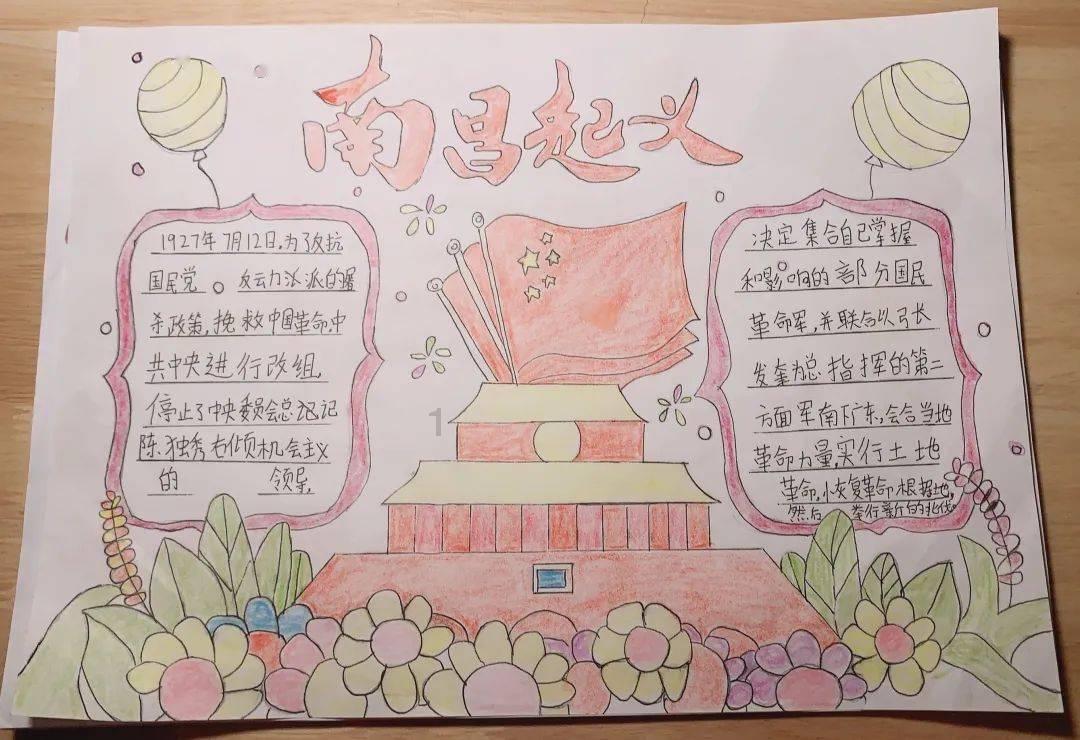 南昌起义
1927年7月12日,为了反抗
国民党 反云力派派的屠
杀政策,挽救中国革命,中
共中央进行改组,
停止了中央委员会总记
陈独秀右倾机会主义
的 领导,
决定集合自己掌握
和影响的部分国民
革命军,并联合以弓长
发奎为总指挥的第二
方面军南下广东,会合当地
革命力量,实行土地
革命,恢复革命根据地,
然后 举行新的北伐。